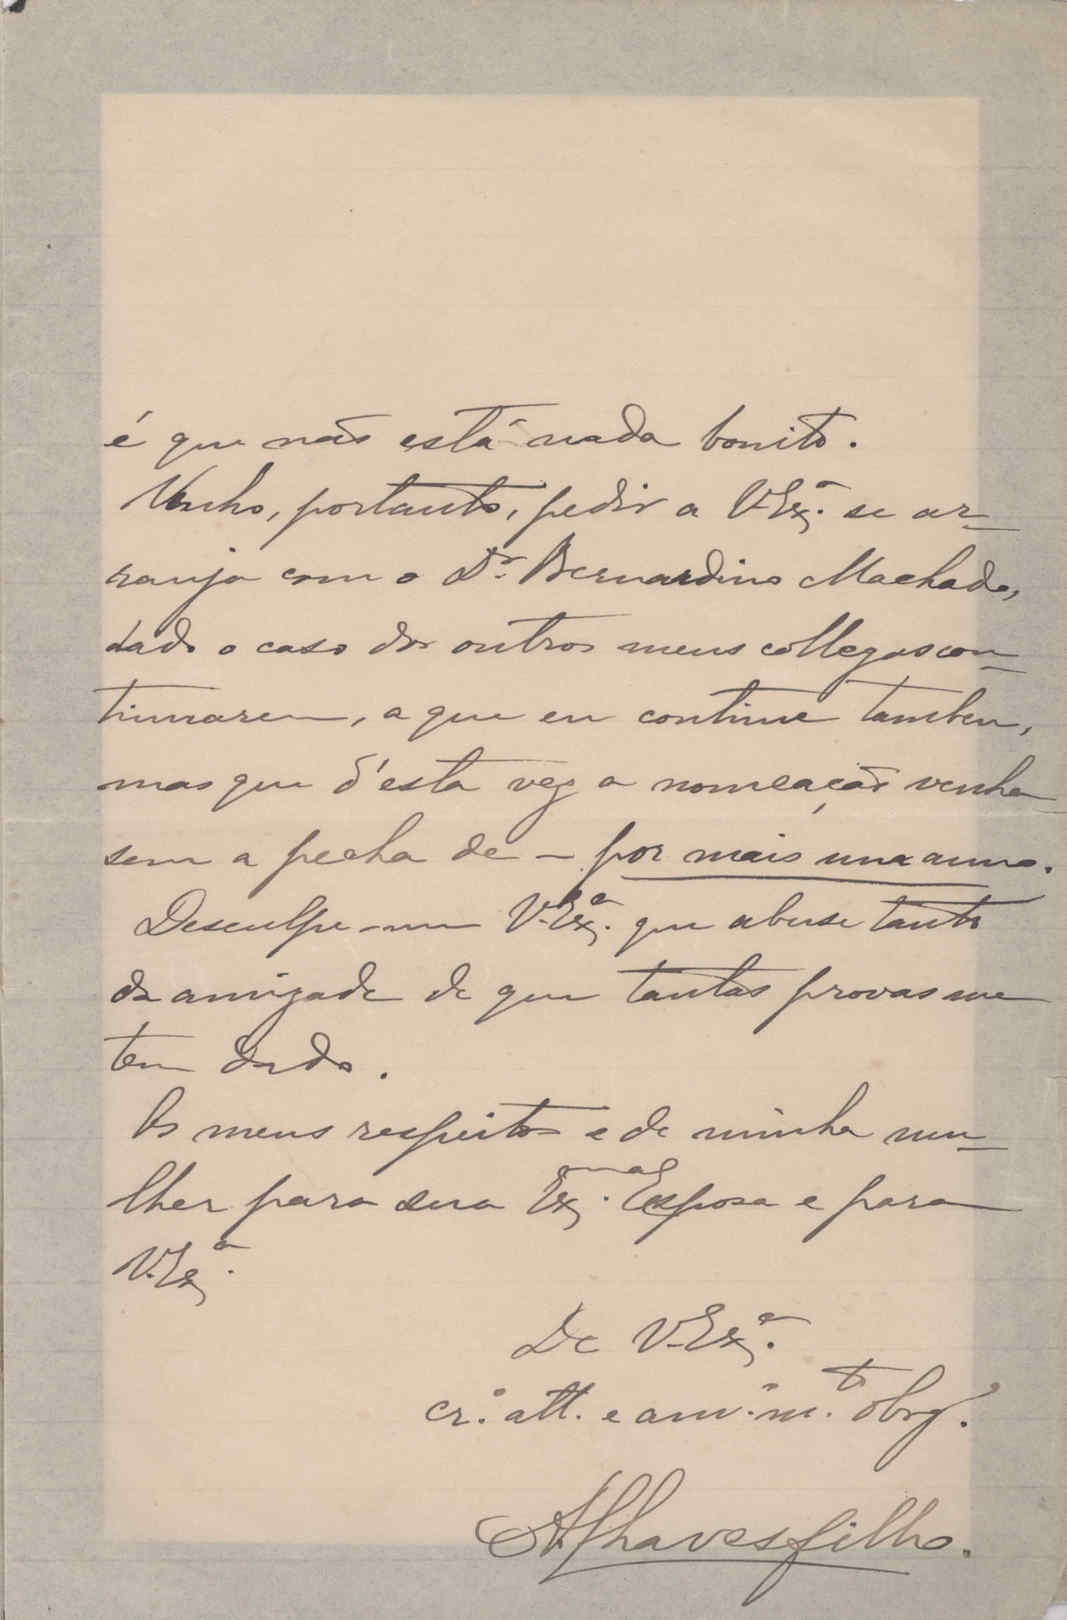 é que não está nada bonito.
Venho, portanto, pedir a V. Ex.ª se ar-
ranja com o Dr. Bernardino Machado,
dado o caso dos outros meus collegas con-
tinuarem, a que eu continue tambem,
mas que d'esta vez a nomeação venha
sem a pecha de – por mais um anno.
Desculpe-me V. Ex.ª que abuse tanto
da amizade de que tantas provas me
tem dado.
Os meus respeitos e de minha mu-
lher para sua Ex.ma Esposa e para
V. Ex.ª
De V. Ex.ª
cr.º att. e am.º m.to obrg.º
A Chaves filho.